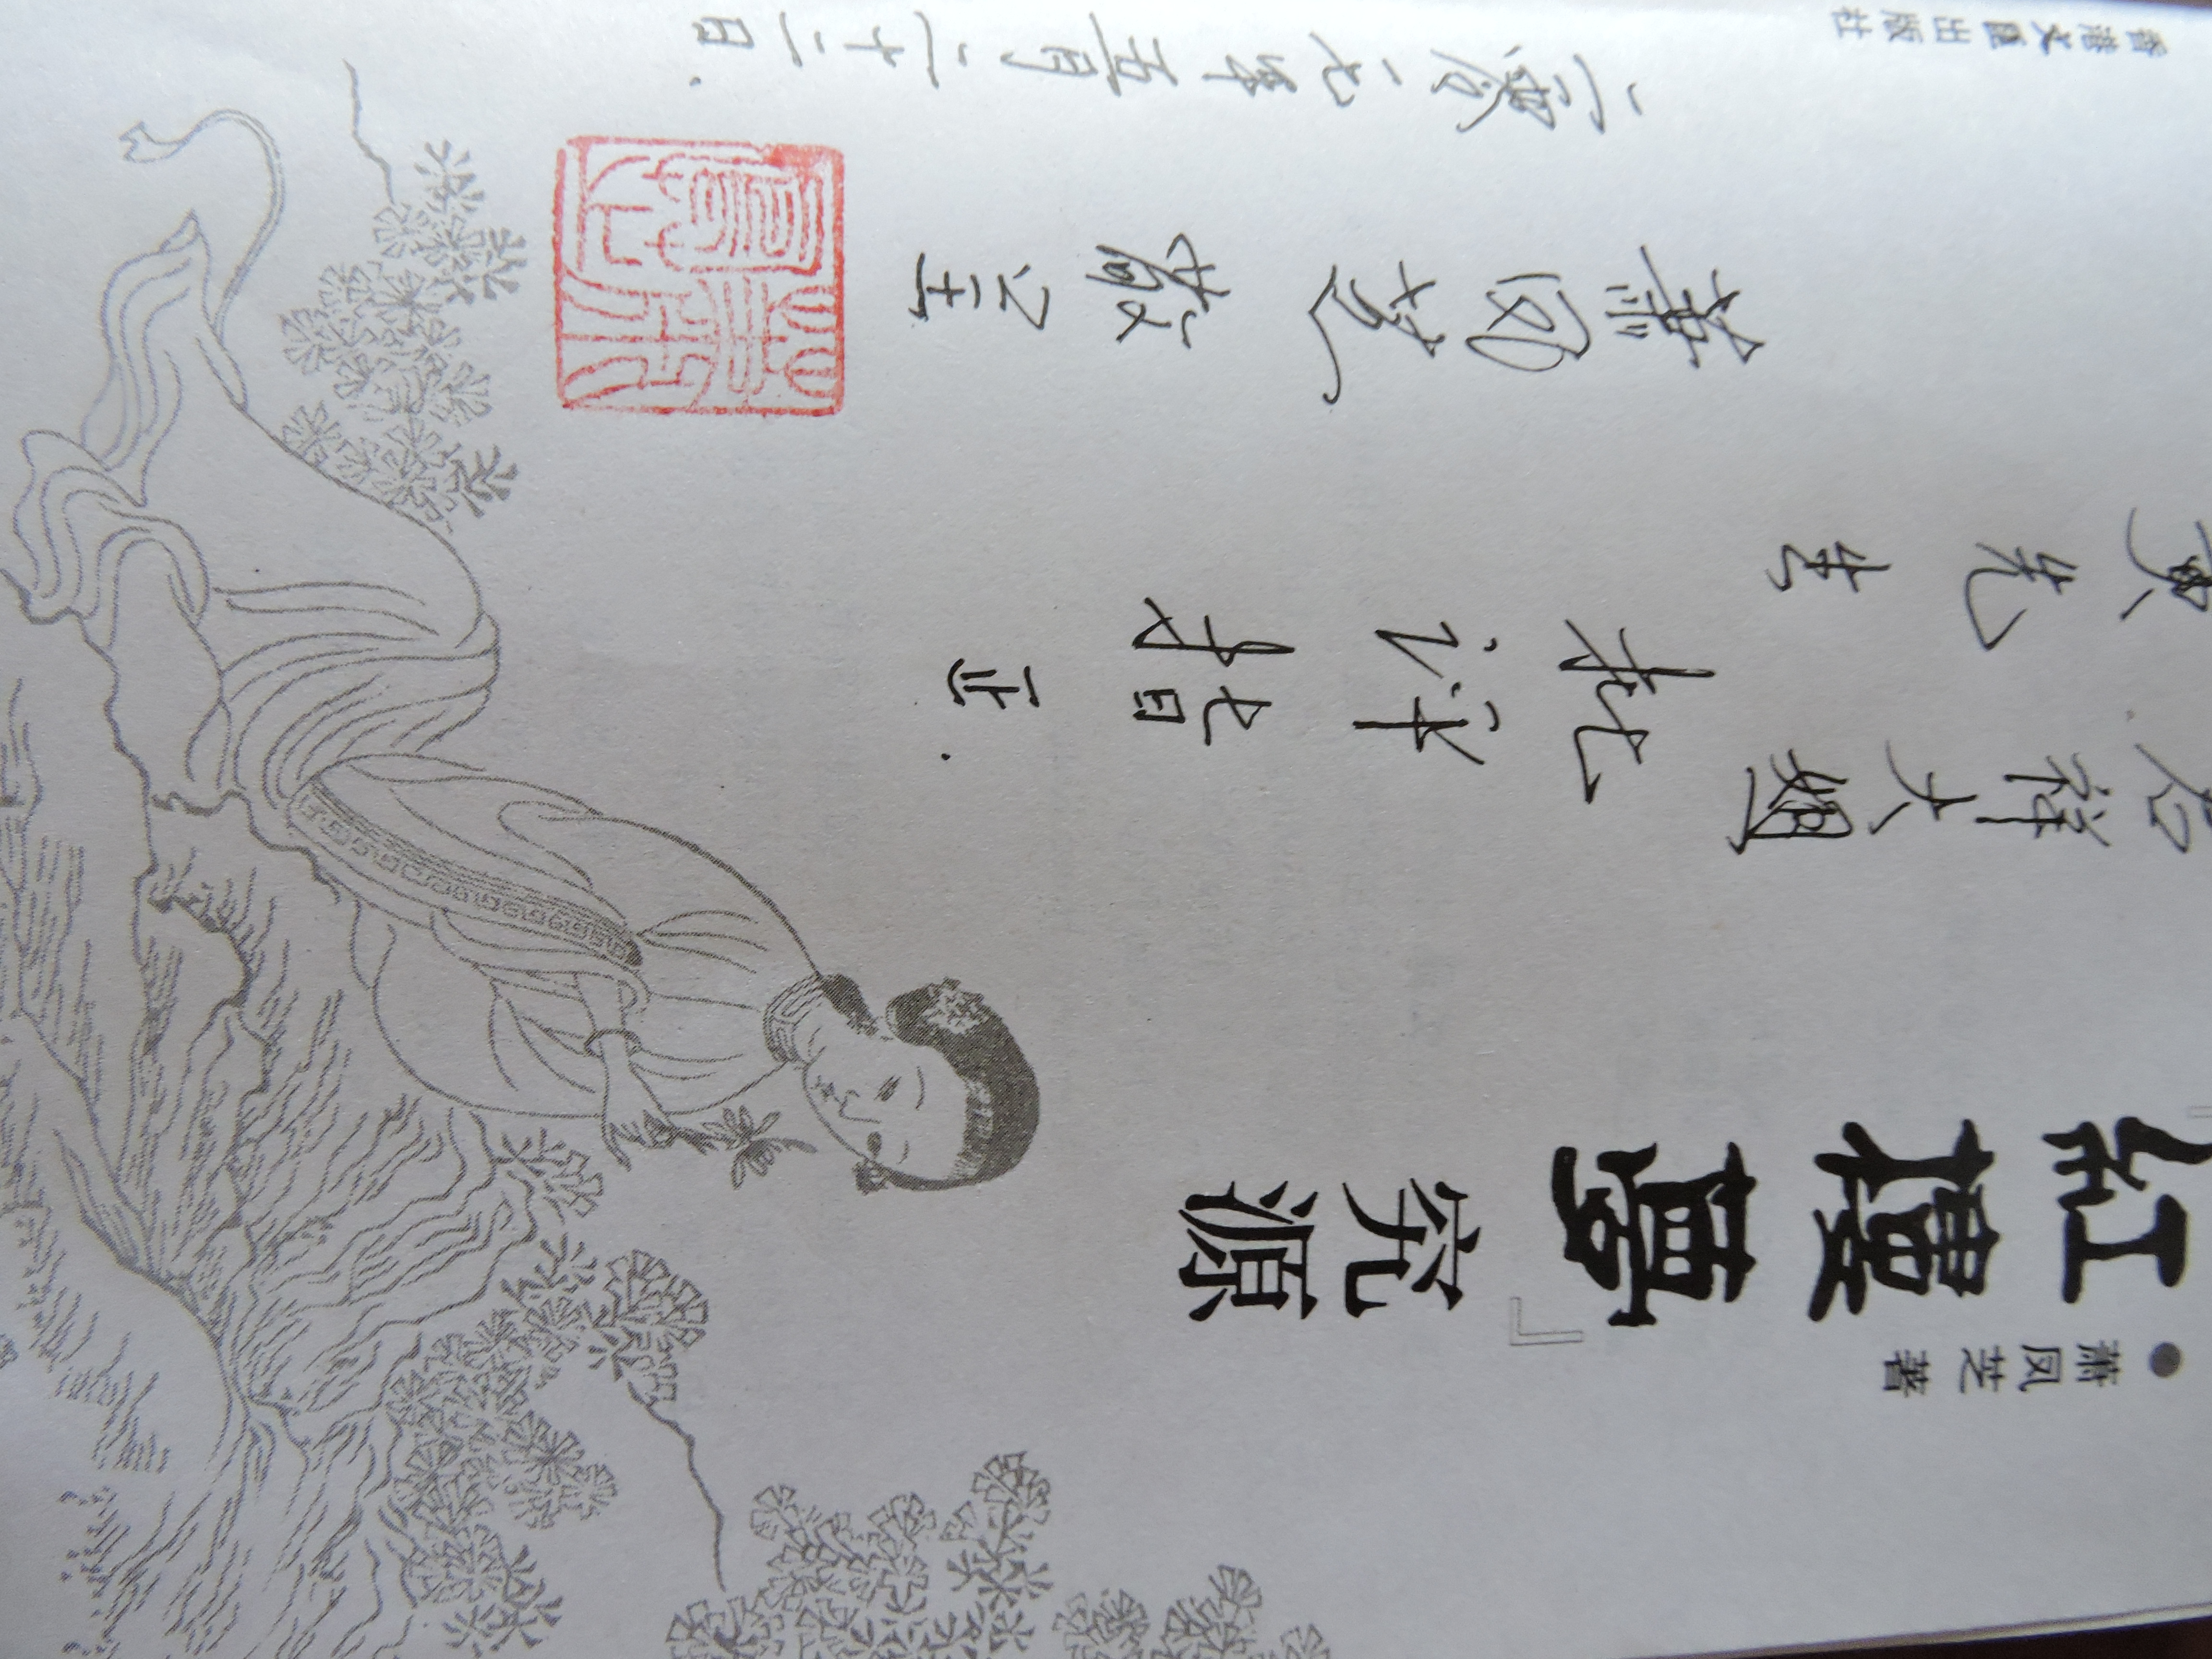 ●萧凤芝 著
『紅樓夢』究源
祥大姐
先生
批评指正.
萧凤芝 敬呈
二零一七年五月二十二日.
萧鳳芝
香港文匯出版社